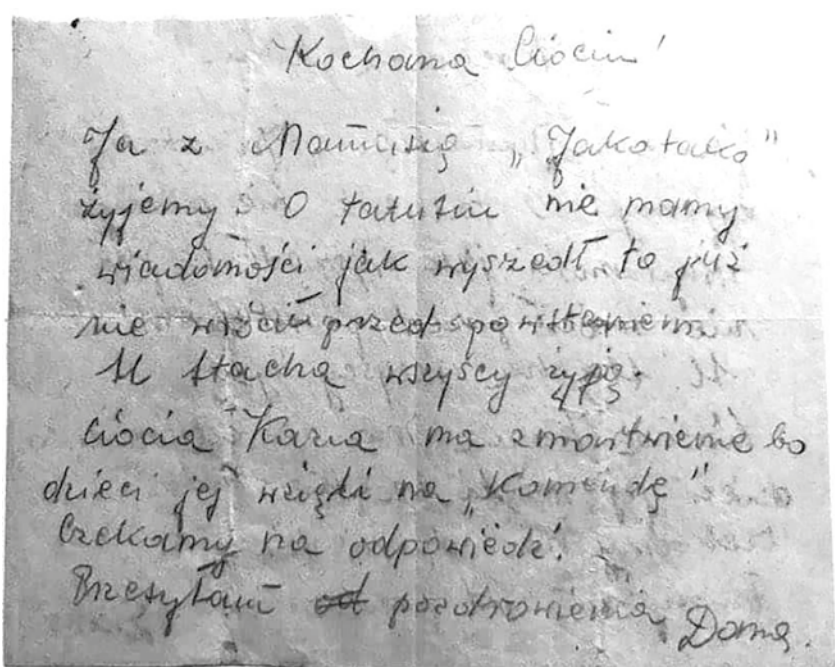 Kochana Ciociu!
Ja z Mamusią „Jakotako"
żyjemy. O tatusiu nie mamy
wiadomości jak wyszedł to już
nie wrócił przed powstaniem.
U Stacha wszyscy żyją.
Ciocia Kazia ma zmartwienie bo
dzieci jej wzięli na „Komendę"
Czekamy na odpowiedź.
Przesyłam pozdrowienia
Dana.